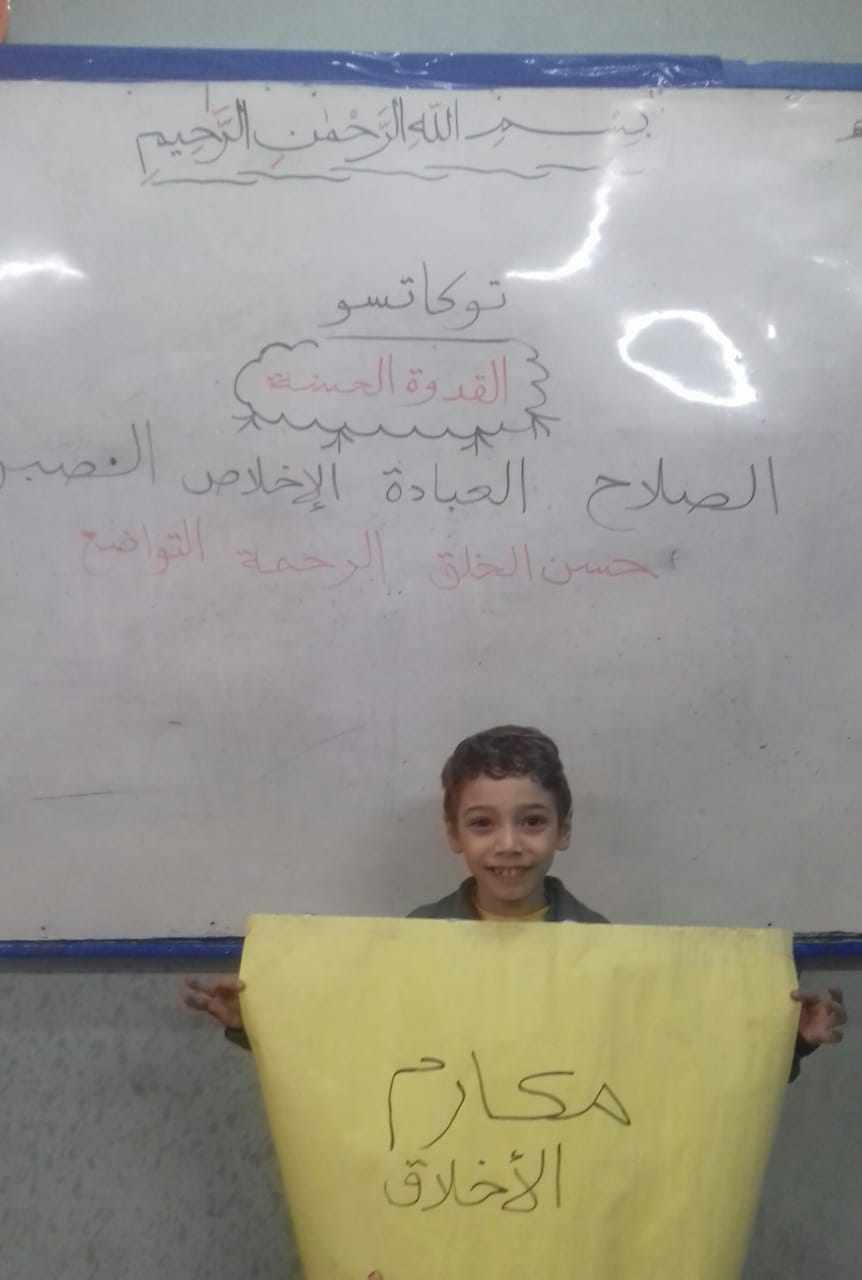 بِسْمِ اللَّهِ الرَّحْمَٰنِ الرَّحِيمِ
توكاتسو
القدوة الحسنة
الصلاح العبادة الإخلاص الصبر
حسن الخلق الرحمة التواضع
مكارم
الأخلاق